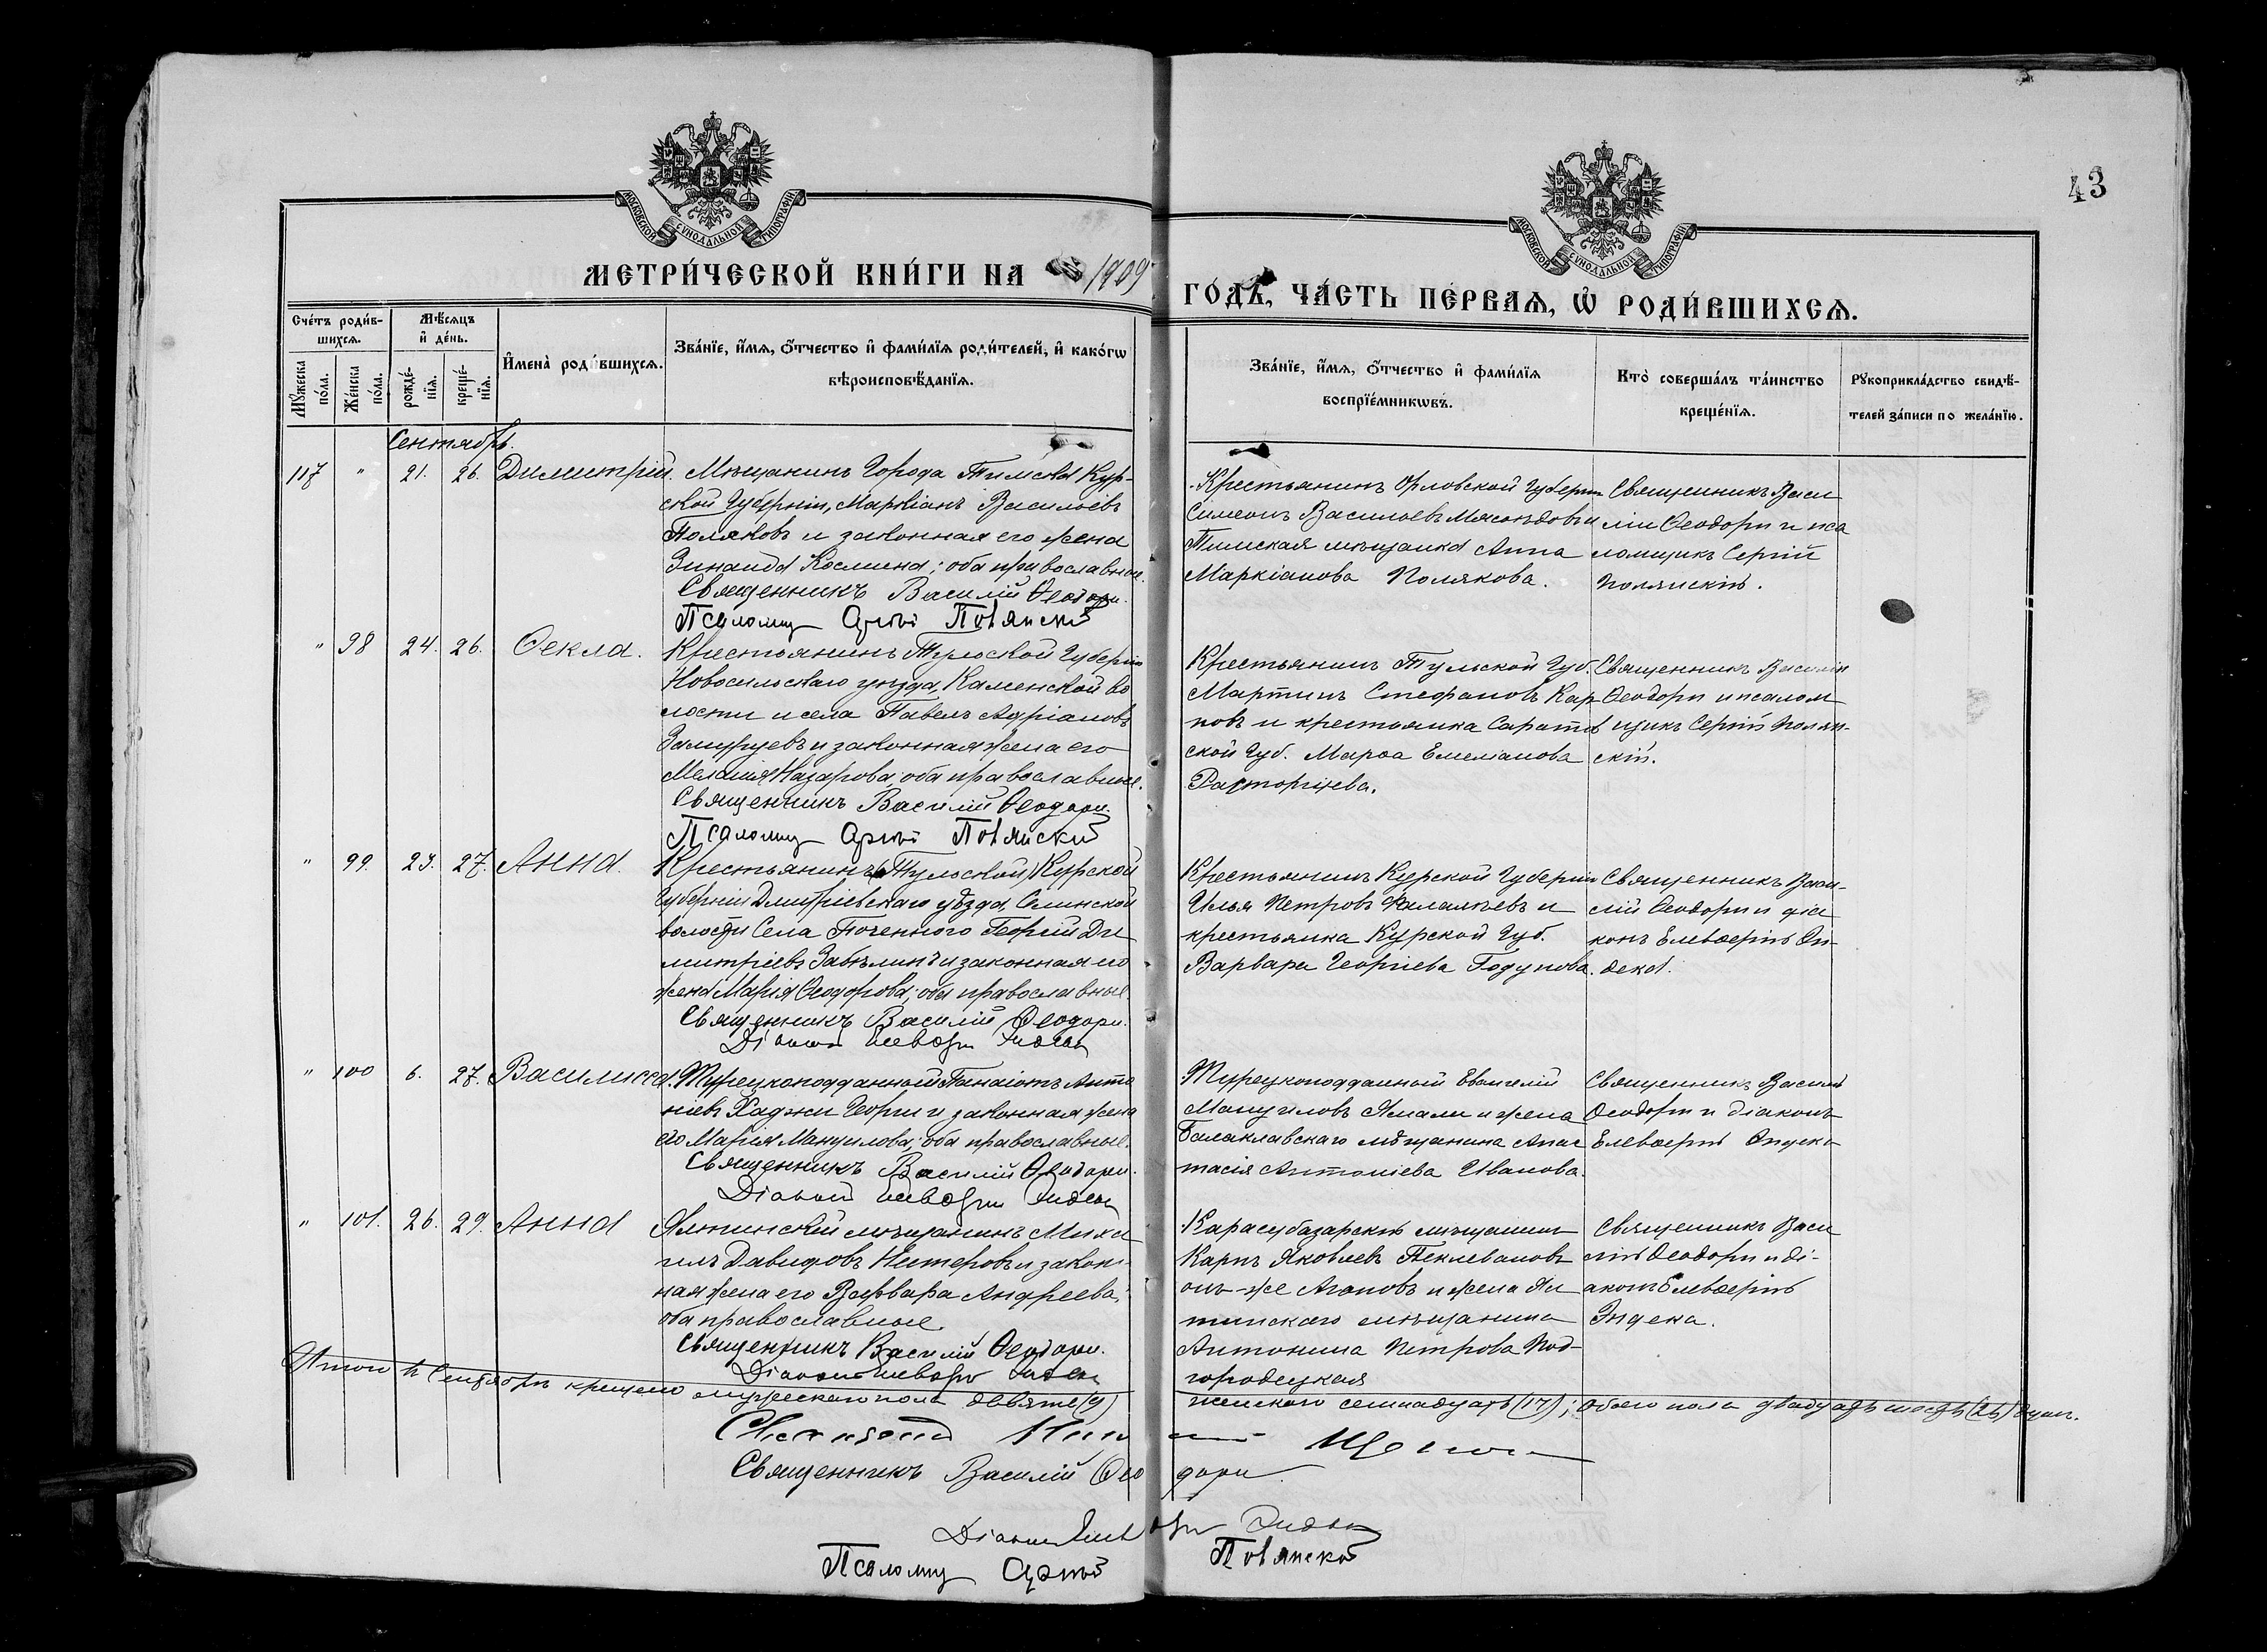 43
МОСКОВСКОЙ СѴНОДАЛЬНОЙ ТИПОГРАФІИ
МОСКОВСКОЙ СѴНОДАЛЬНОЙ ТИПОГРАФІИ
МЕТРИ́ЧЕСКОЙ КНИ́ГИ НА 1909 ГО́ДЪ, ЧА́СТЬ ПЕ́РВАЯ, Ѡ҆ РОДИ́ВШИХСЯ.
Сче́тъ роди́в-
шихсѧ.
Мꙋ́жеска по́ла.
Же́нска по́ла.
Мѣ́сѧцъ
и҆ де́нь.
рожде́-
нїѧ.
креще́-
нїѧ.
И҆мена̀ роди́вшихсѧ.
Зва́нїе, и҆́мѧ, ѻ҆́тчество и҆ фами́лїѧ роди́телей, и҆ како́гѡ
вѣроисповѣ́данїѧ.
Зва́нїе, и҆́мѧ, ѻ҆́тчество и҆ фами́лїѧ
воспрїе́мникѡвъ.
Кто̀ соверша́лъ та́инство
креще́нїѧ.
Рꙋкоприкла́дство свидѣ́-
телей за́писи по жела́нїю.
Сентябрь.
117 " 21. 26. Димитрій.
Мѣщанинъ города Тимска Кур-
ской Губерніи, Маркіанъ Васильевъ
Поляковъ и законная его жена
Зинаида Космина; оба православные.
Священникъ Василій Ѳеодори.
Псаломщ Сергій Полянскій
Крестьянинъ Орловской Губерніи
Симеонъ Васильевъ и
Тимская мѣщанка Анна
Маркіанова Полякова.
Священникъ Васи
лій Ѳеодори и пса
ломщикъ Сергій
Полянскій.
" 98 24. 26. Ѳекла.
Крестьянинъ Тульской Губерніи
Новосильскаго уѣзда, Каменской во
лости и села Павелъ Адріановъ
и законная жена его
Меланія Назарова; оба православные.
Священникъ Василій Ѳеодори.
Псаломщ Сергій Полянскій
Крестьянинъ Тульской Губ.
Мартинъ Стефановъ Кар
повъ и крестьянка Саратов
ской Губ. Марѳа Емеліанова
Расторгуева.
Священникъ Василій
Ѳеодори и псалом
щикъ Сергій Полян-
скій.
" 99. 27. Анна.
Крестьянинъ (Тульской) Курской
Губерніи Дмитріевскаго уѣзда, Селинской
волости Села Поченного Георгій Ди
митріевъ Забѣлинъ и законная его
жена Марія Ѳеодорова; оба православные.
Священникъ Василій Ѳеодори.
Діаконъ Елевѳерій Эндека
Крестьянинъ Курской Губерніи
Илья Петровъ и
крестьянка Курской Губ.
Варвара Георгіева Годунова.
Священникъ Васи-
лій Ѳеодори и діа
конъ Елевѳерій Эн-
дека.
" 100 6. 27. Василисса.
Турецкоподданный Панаіотъ Анто
ніевъ Хаджи Георги и законная жена
его Марія Мануилова; оба православные.
Священникъ Василій Ѳеодори.
Діаконъ Елевѳерій Эндека
Турецкоподданный Евангелій
Мануиловъ и жена
Балаклавскаго мѣщанина Анас
тасія Антоніева Иванова.
Священникъ Василій
Ѳеодори и діаконъ
Елевѳерій Эндека
" 101. 26. 29. Анна
Ялтинскій мѣщанинъ Миха
илъ Давидовъ Нестеровъ и закон-
ная жена его Варвара Андреева;
оба православные.
Священникъ Василій Ѳеодори.
Діаконъ Елевѳерій Эндека
Карасубазарскій мѣщанинъ
Карпъ Яковлевъ
онъ-же Агаповъ и жена Ял
тинскаго мѣщанина
Антонина Петрова Под-
городецкая
Священникъ Васи
лій Ѳеодори и ді-
аконъ Елевѳерій
Эндека.
Итого въ Сентябрѣ крещено мужескаго пола девять (9)
женскаго семнадцать (17); обоего пола двадцать шесть (26) душъ.
Священникъ Василій Ѳеодори
Діаконъ Елевѳерій Эндека
Псаломщ Сергій Полянскій